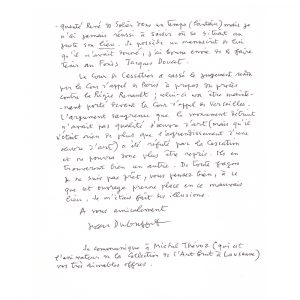 -quenté René de Solier dans un temps (lointain) mais je
n'ai jamais réussi à savoir où se situait au
juste son lieu. Je possède un manuscrit de lui
qu'il m'avait donné; j'ai bonne envie de le faire
tenir au Fonds Jacques Doucet.
La Cour de Cassation a cassé le jugement rendu
par la Cour d'appel de Paris à propos du procès
contre la Régie Renault; celui-ci va être mainte-
-nant porté devant la Cour d'appel de Versailles.
L'argument saugrenu que le monument détruit
n'avait pas qualité d'œuvre d'art (mais qu'il
n'était rien de plus que l'agrandissement d'une
œuvre d'art) a été réfuté par la Cassation
et ne pourra donc plus être repris. Ils en
trouveront bien un autre. De toute façon
je ne suis pas prêt, vous pensez bien, à ce
que cet ouvrage prenne place en ce mauvais
lieu. Je m'étais fait des illusions
A vous amicalement
Jean Dubuffet
Je communique à Michel Thévoz (qui est
l'animateur de la Collection de l'Art Brut à Lausanne)
vos très aimables offres.